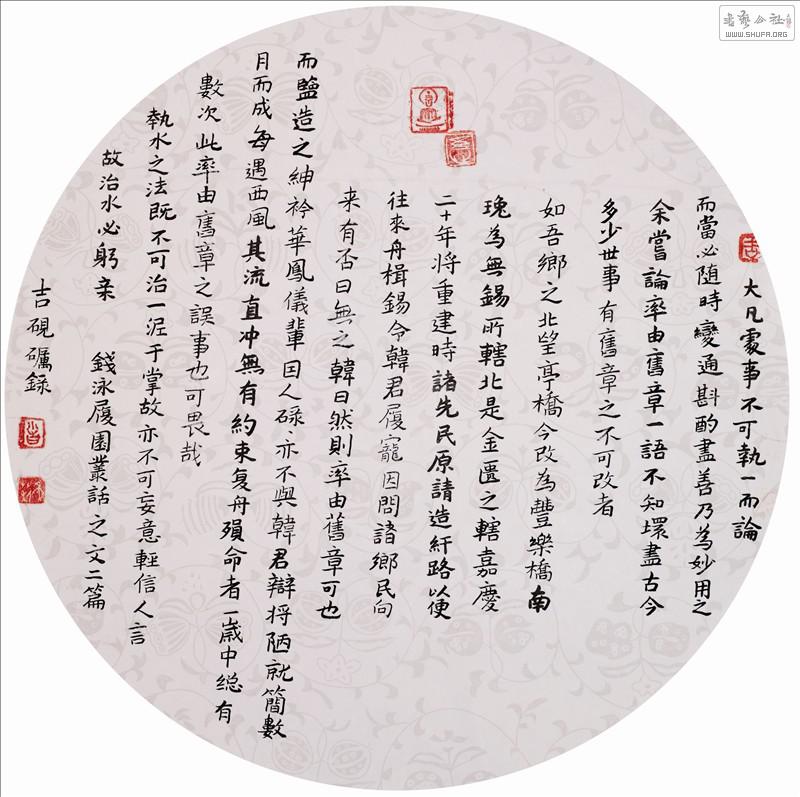 大凡處事不可執一而論
而當必隨時變通斟酌盡善乃為妙用之
余嘗論率由舊章一語不知壞盡古今
多少世事有舊章之不可改者
如吾鄉之北望亭橋今改為豐樂橋南
瑰為無錫所轄北是金匱之轄嘉慶
二十年將重建時諸先民原請造紆路以便
往來舟楫錫令韓君履寵因問諸鄉民向
来有否曰無之韓曰然則率由舊章可也
而鹽造之紳衿華鳳儀輩因人碌亦不與韓君辯将陋就簡數
月而成每遇西風其流直冲無有約束复舟殞命者一歲中總有
數次此率由舊章之誤事也可畏哉
執水之法既不可治一泥于掌故亦不可妄意輕信人言
故治水必躬亲 錢泳履園叢話之文二篇
吉硯礪録
書藝公社
WWW.SHUFA.ORG